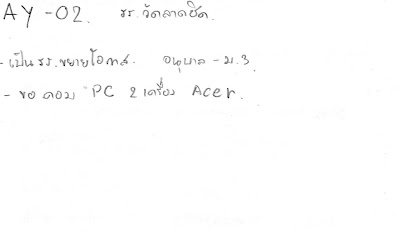 AY-02. รร.วัดลาดชิด.
- เป็น รร.ขยายโอกาส. อนุบาล - ม.3
- ขอ คอม PC 2 เครื่อง Acer.